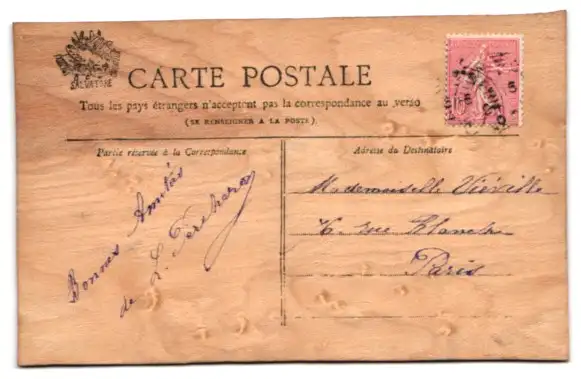 SALVATORE
CARTE POSTALE
Tous les pays étrangers n'acceptent pas la correspondance au verso
(SE RENSEIGNER A LA POSTE).
Partie réservée à la Correspondance
Adresse du Destinataire
Bonnes Amitiés
de L.
Mademoiselle Viéville
rue Blanche
Paris